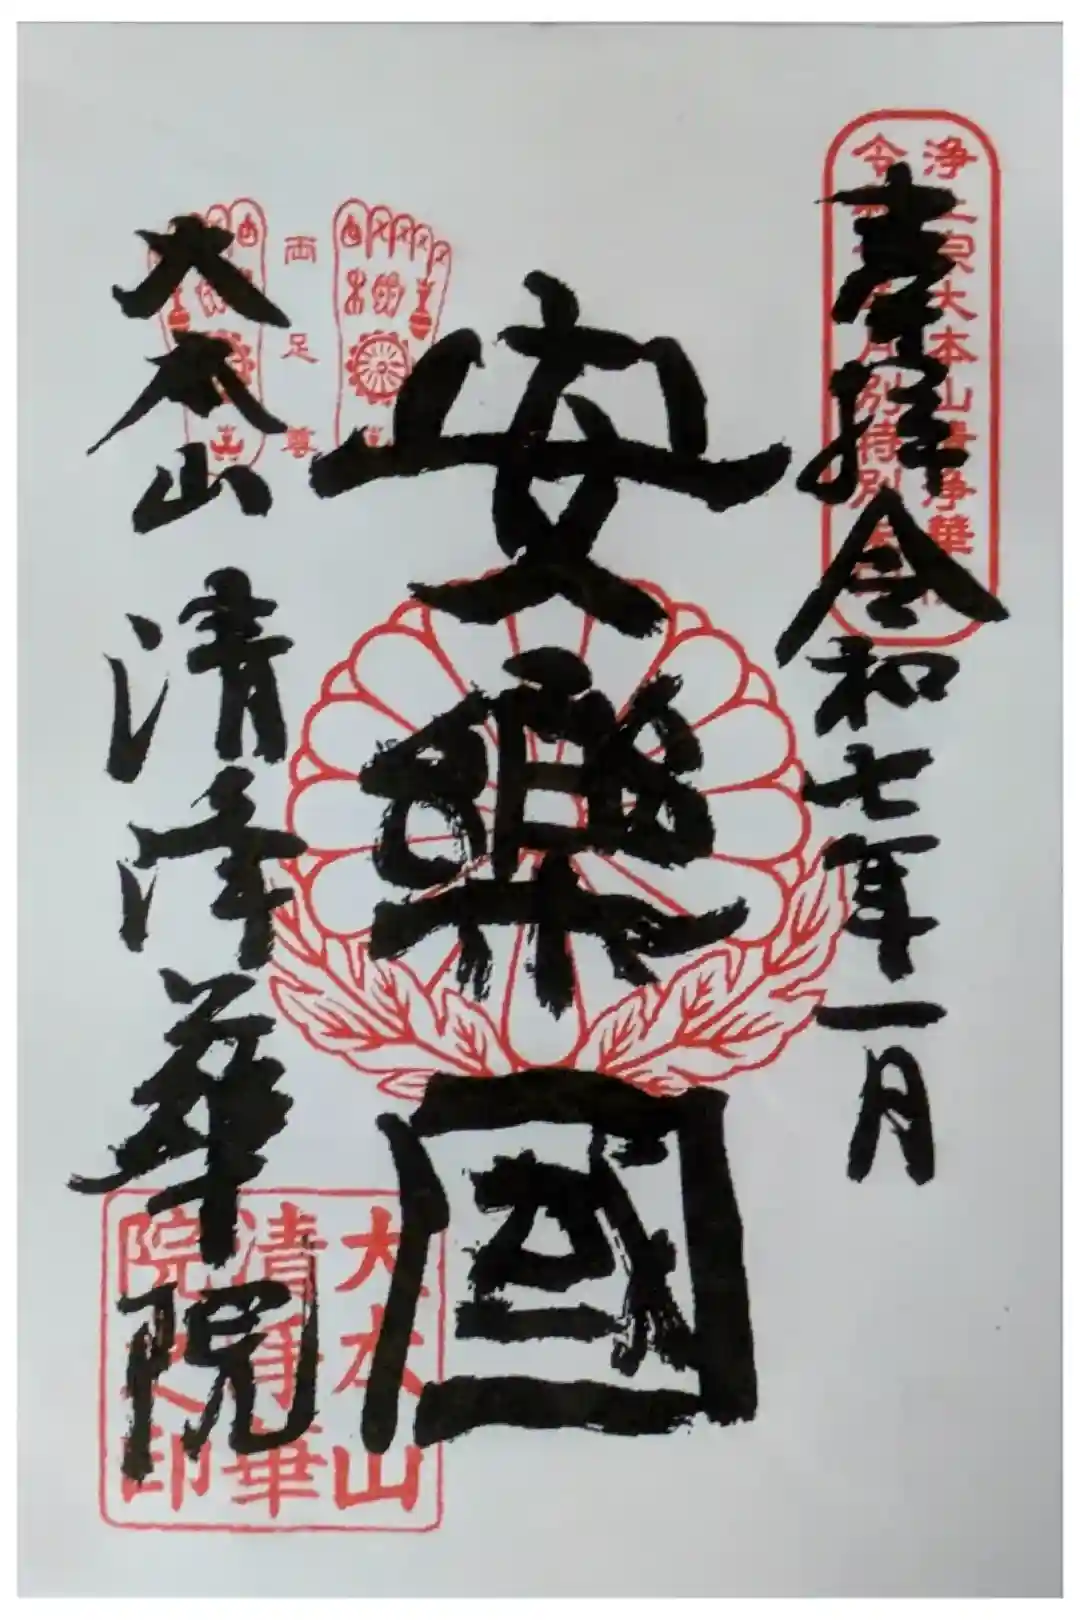 奉拝 令和七年一月
浄土宗大本山清浄華院
令和 月別特別
安樂國
両足尊
大本山 清浄華院
大本山
清浄華
院之印